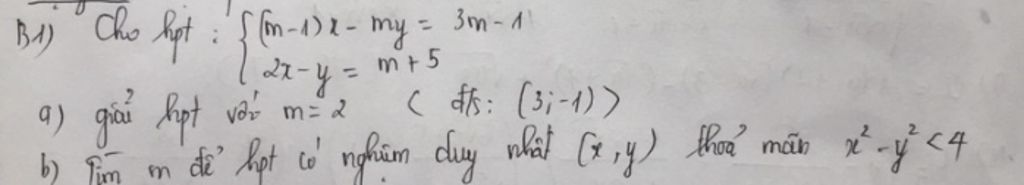 B1) Cho hpt : { (m-1)x - my = 3m - 1
2x - y = m + 5
a) giải hpt với m = 2 < đ/s: (3;-1) >
b) Tìm m để hpt có nghiệm duy nhất (x,y) thoả mãn x² - y² < 4